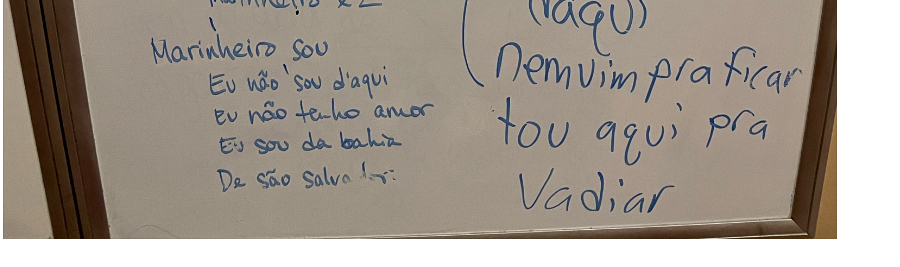 Marinheiro sou
Eu não sou d'aqui
Eu não tenho amor
Eu sou da bahia
De são Salvador:
nem vim pra ficar
tou aqui pra
Vadiar